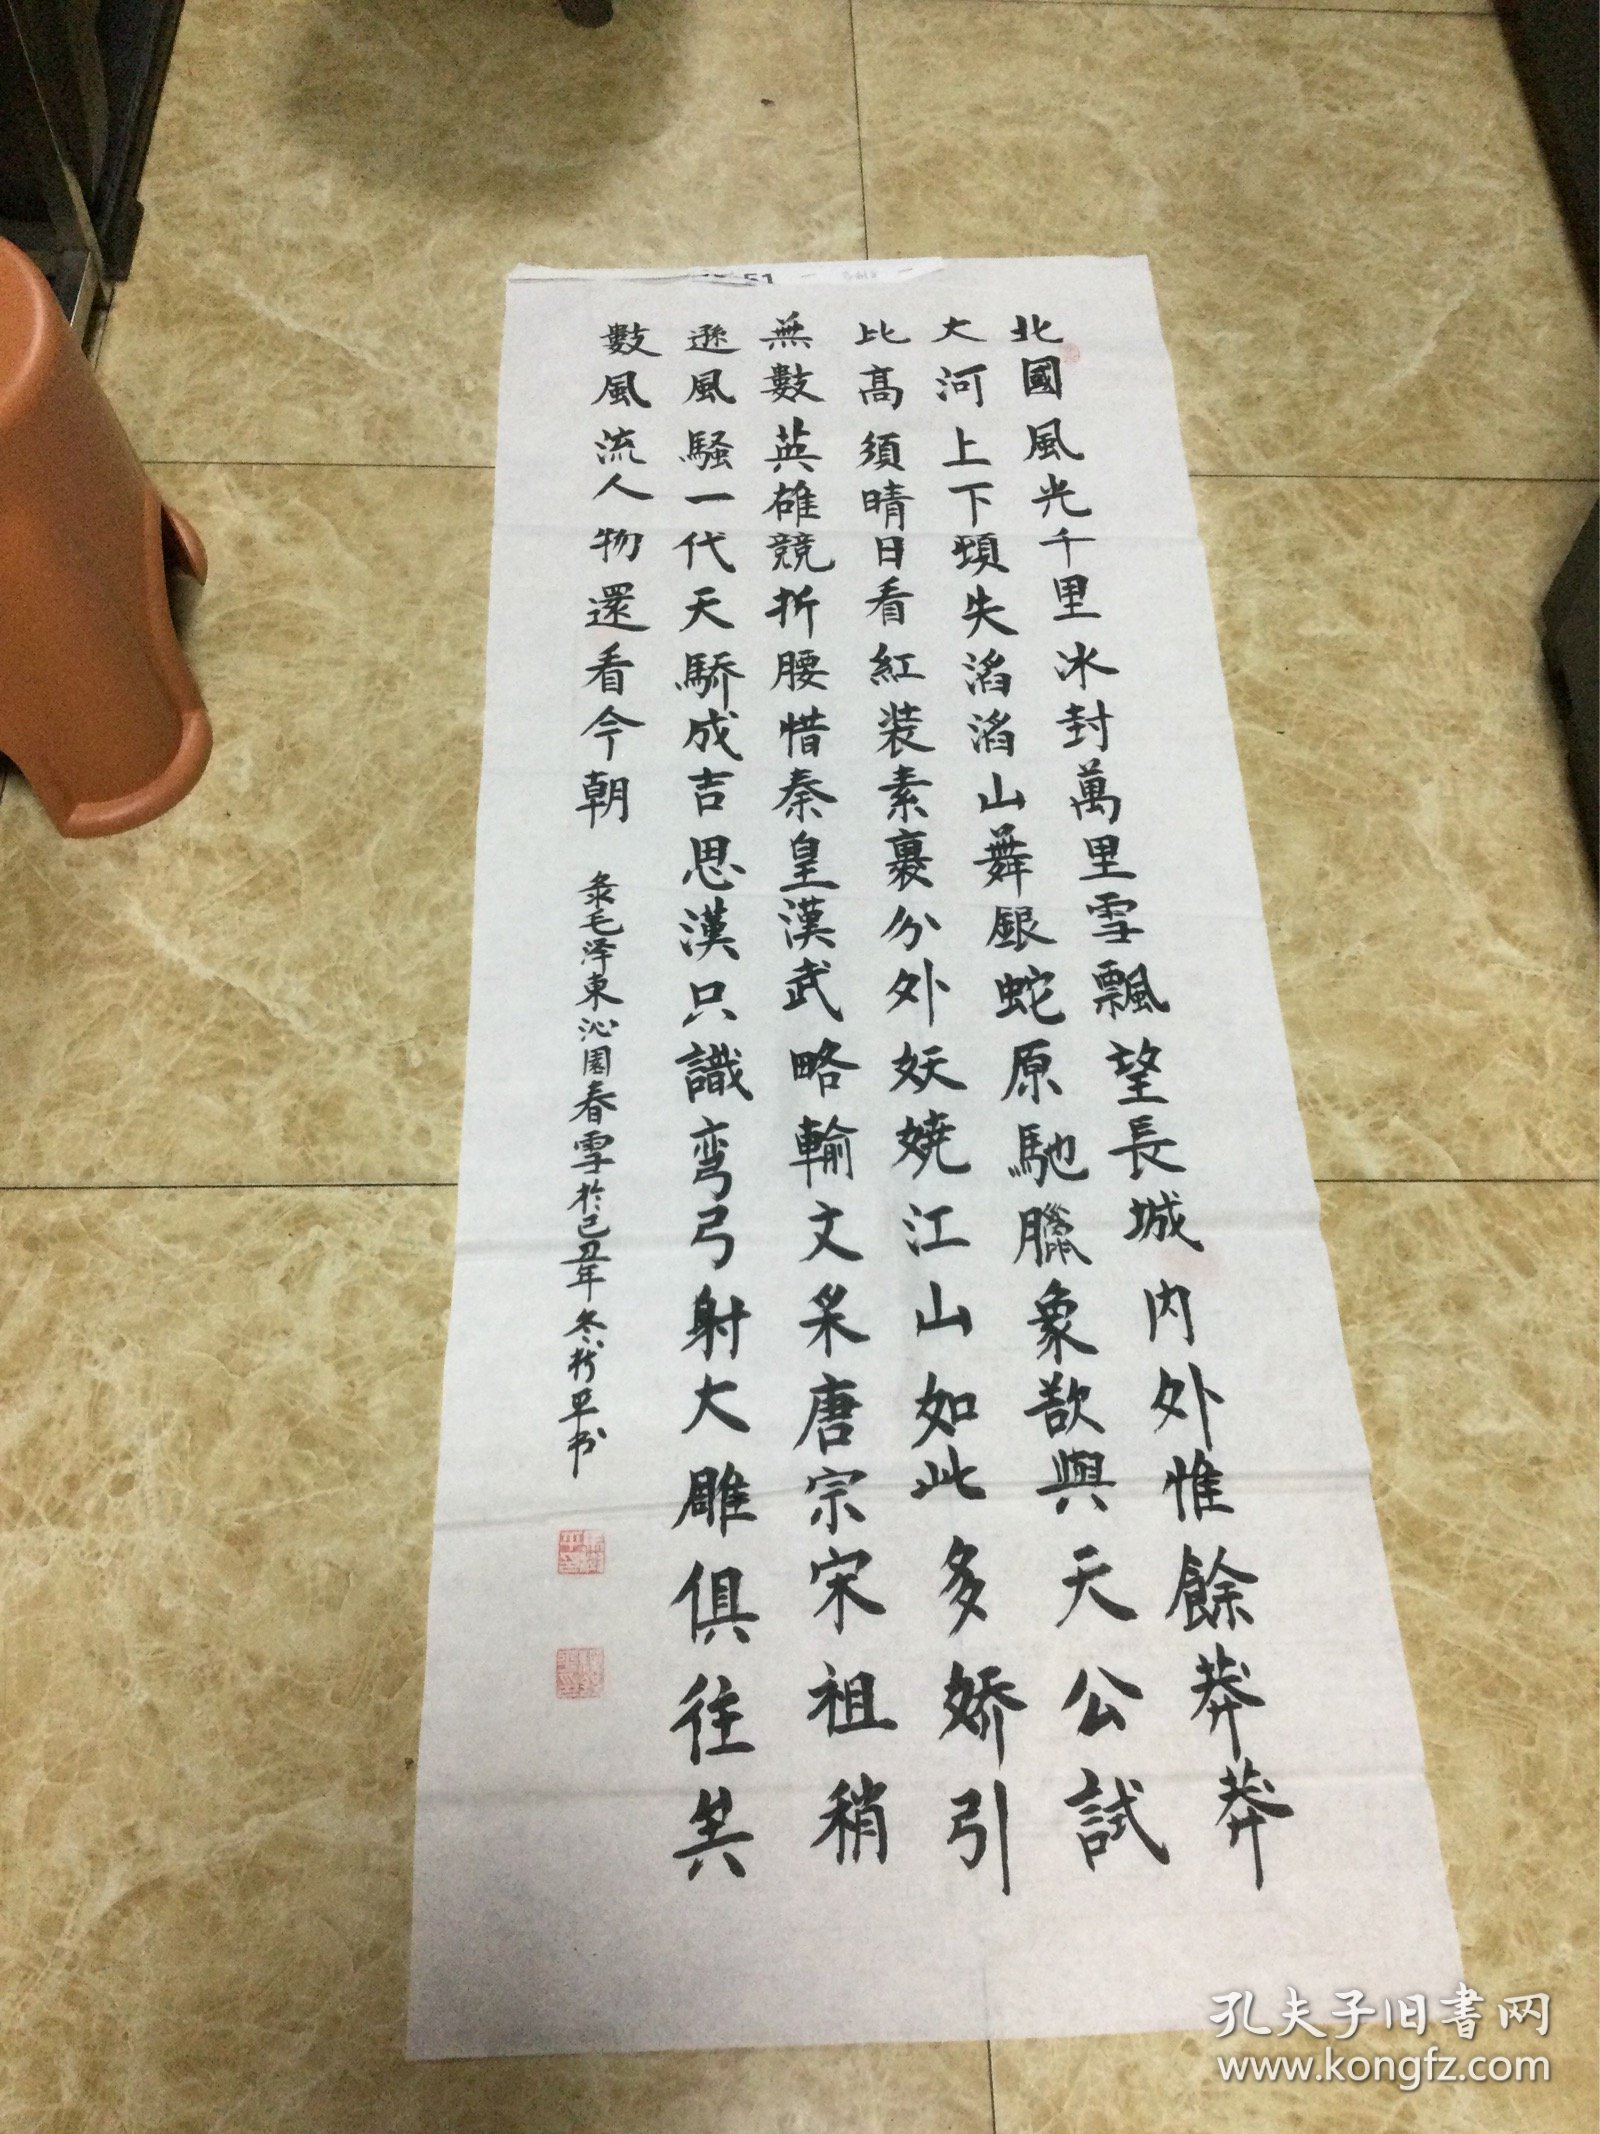 北國風光千里冰封萬里雪飄望長城內外惟餘莽莽
大河上下頓失滔滔山舞銀蛇原馳臘象欲與天公試
比高須晴日看紅装素裹分外妖嬈江山如此多嬌引
無數英雄競折腰惜秦皇漢武略輸文采唐宗宋祖稍
遜風騷一代天驕成吉思漢只識彎弓射大雕俱往矣
數風流人物還看今朝
录毛泽東沁園春雪於己丑年冬 平书
51
孔夫子旧書网
www.kongfz.com